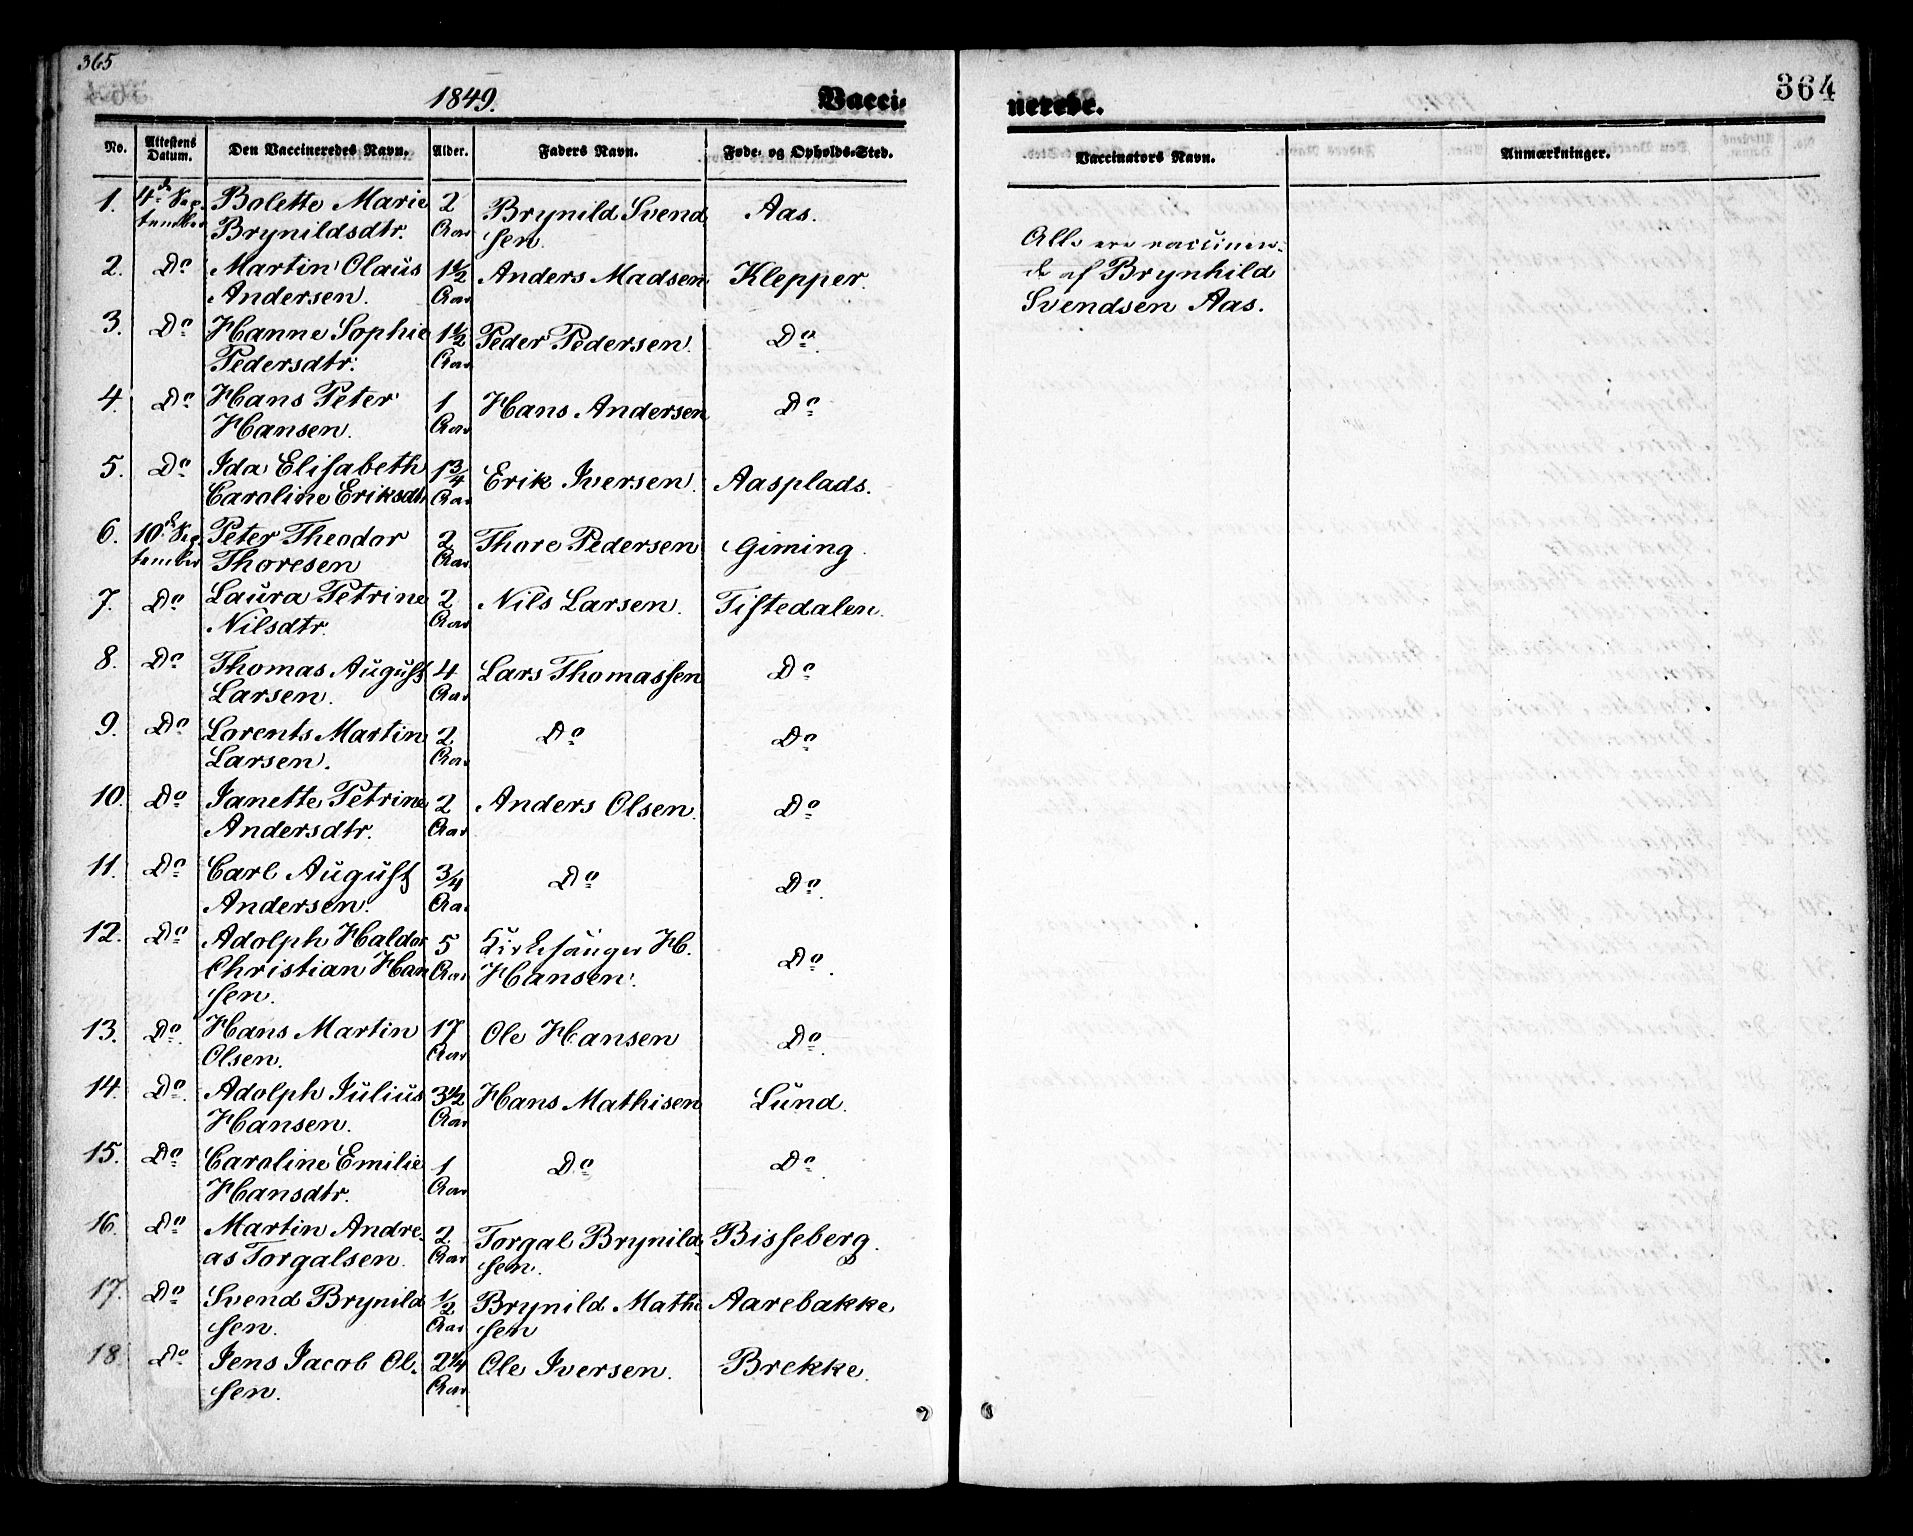 365
1849.
Vacci-
nerede.
364
No. Attestens Datum. Den Vaccineredes Navn. Alder. Faders Navn. Føde- og Opholds-Sted. Vaccinators Navn. Anmærkninger.
1. 4de Sep- Bolette Marie 2 Brynild Svend Aas.
tember Brynildsdtr. Aar sen.
Alle ere vaccinere-
de af Brynhild
Svendsen Aas.
2. Do Martin Olaus 1½ Anders Madsen Klepper.
Andersen. Aar
3. Do Hanne Sophie 1½ Peder Pedersen. Do.
Pedersdtr. Aar
4. Do Hans Peter 1 Hans Andersen Do
Hansen. Aar
5. Do Ida Elisabeth 1¾ Erik Iversen. Aasplads.
Caroline Eriksdtr Aar
6. 10de Sep- Peter Theodor 2 Thore Pedersen Giming.
tember Thoresen Aar
7. Do Laura Petrine 2 Nils Larsen. Tistedalen.
Nilsdtr. Aar
8. Do Thomas August 4 Lars Thomassen Do
Larsen. Aar
9. Do Lorents Martin 2 Do Do
Larsen. Aar
10. Do Janette Petrine 2 Anders Olsen. Do
Andersdtr. Aar
11. Do Carl August ¾ Do Do.
Andersen. Aar
12. Do Adolph Haldor 5 Kirkesanger H. Do.
Christian Han Aar Hansen.
sen.
13. Do. Hans Martin 17 Ole Hansen Do.
Olsen. Aar
14. Do. Adolph Julius 3½ Hans Mathisen Lund.
Hansen. Aar
15. Do Caroline Emilie 1 Do Do.
Hansdtr. Aar
16. Do Martin Andre- 2 Torgal Brynild- Bisseberg.
as Torgalsen. Aar sen.
17. Do Svend Brynild ½ Brynild Mathi Aarebakke
sen. Aar sen
18 Do Jens Jacob Ol- 2¼ Ole Iversen. Brekke.
sen. Aar